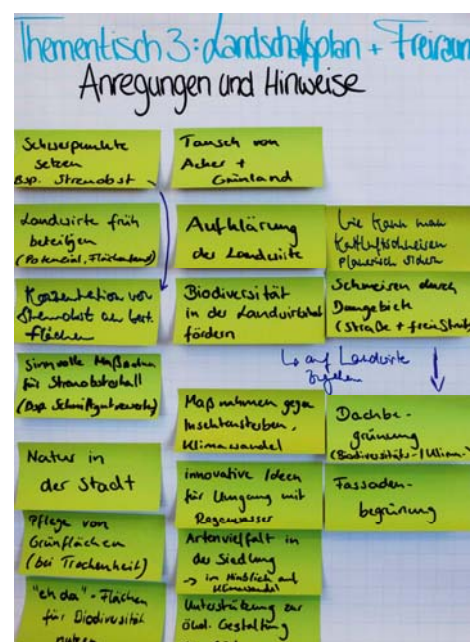 Thementisch 3: Landschaftsplan + Freiraum
Anregungen und Hinweise
Schwerpunkte
setzen
Bsp. Streuobst
Landwirte früh
beteiligen
(Potenzial,
Konzentration von
Streuobst an best.
Flächen
Sinnvolle Maßnahmen
für Streuobsterhalt
(Bsp. Schnittgut
Natur in
der Stadt
Pflege von
Grünflächen
(bei Trockenheit)
"eh da"-Flächen
für Biodiversität
nutzen
Tausch von
Acker +
Grünland
Aufklärung
der Landwirte
Biodiversität
in der Landwirtschaft
fördern
↳ auf Landwirte
zugehen
Maßnahmen gegen
Insektensterben,
Klimawandel
innovative Ideen
für Umgang mit
Regenwasser
Artenvielfalt in
der Siedlung
→ im Hinblick auf
Klimawandel
Unterstützung zur
ökol. Gestaltung
Wie kann man
Kaltluftschneisen
planerisch sichern
Schneisen durch
Baugebiete
(Straße +
Dachbe-
grünung
(Biodiversitäts-/Klima-
Fassaden-
begrünung